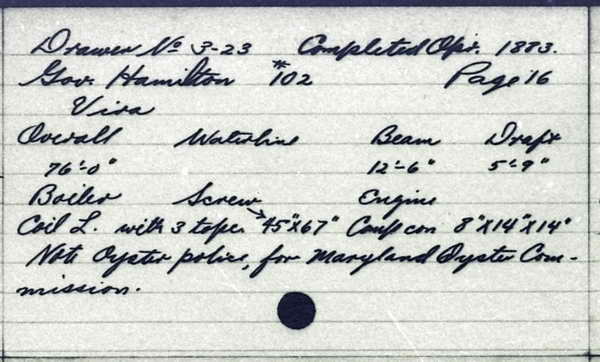 Drawer No 3-23 Completed Apr. 1883.
Gov. Hamilton #102 Page 16
Overall Waterline Beam Draft
76'-0" 12'-6" 5'-9"
Boiler Screw Engine
Coil L. with 3 tope. → 45"x67" Comp con 8"x14"x14"
Note Oyster police, for Maryland Oyster Com-
mission.